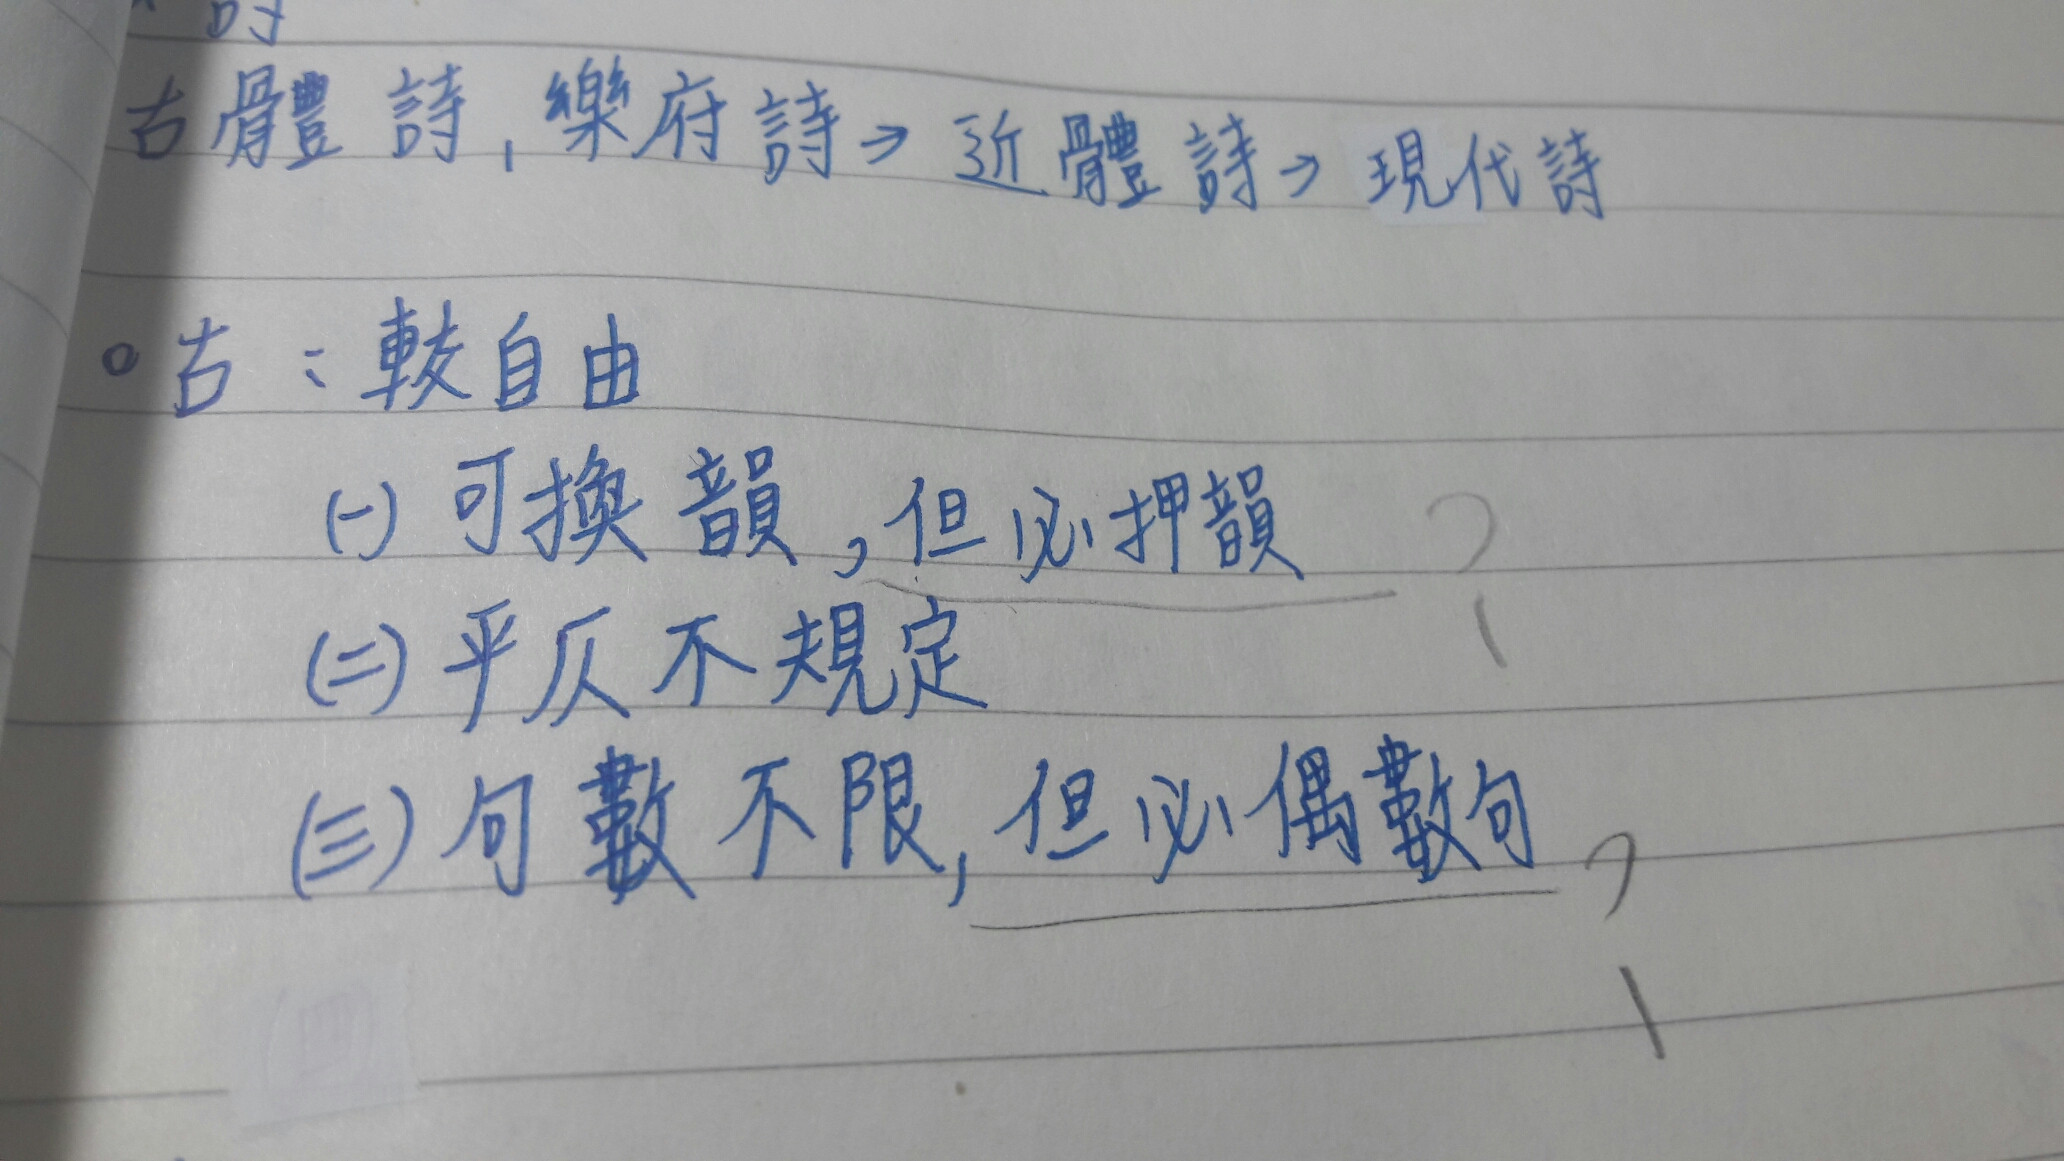 詩
古體詩,樂府詩→近體詩→現代詩
。古:較自由
(一)可換韻,但必押韻?
(二)平仄不規定
(三)句數不限,但必偶數句?